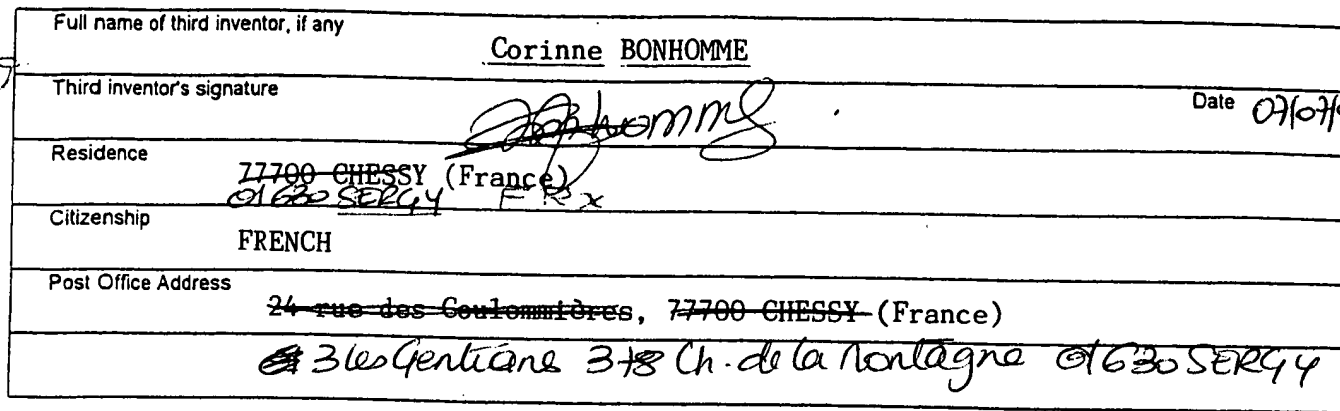 Full name of third inventor, if any
Corinne BONHOMME
Third inventor's signature
Bonhomme Date 07/07/
Residence
77700 CHESSY (France)
01630 SERGY FRX
Citizenship
FRENCH
Post Office Address
24 rue des Coulommières, 77700 CHESSY (France)
3 les Gentiane Ch. de la Montagne 01630 SERGY